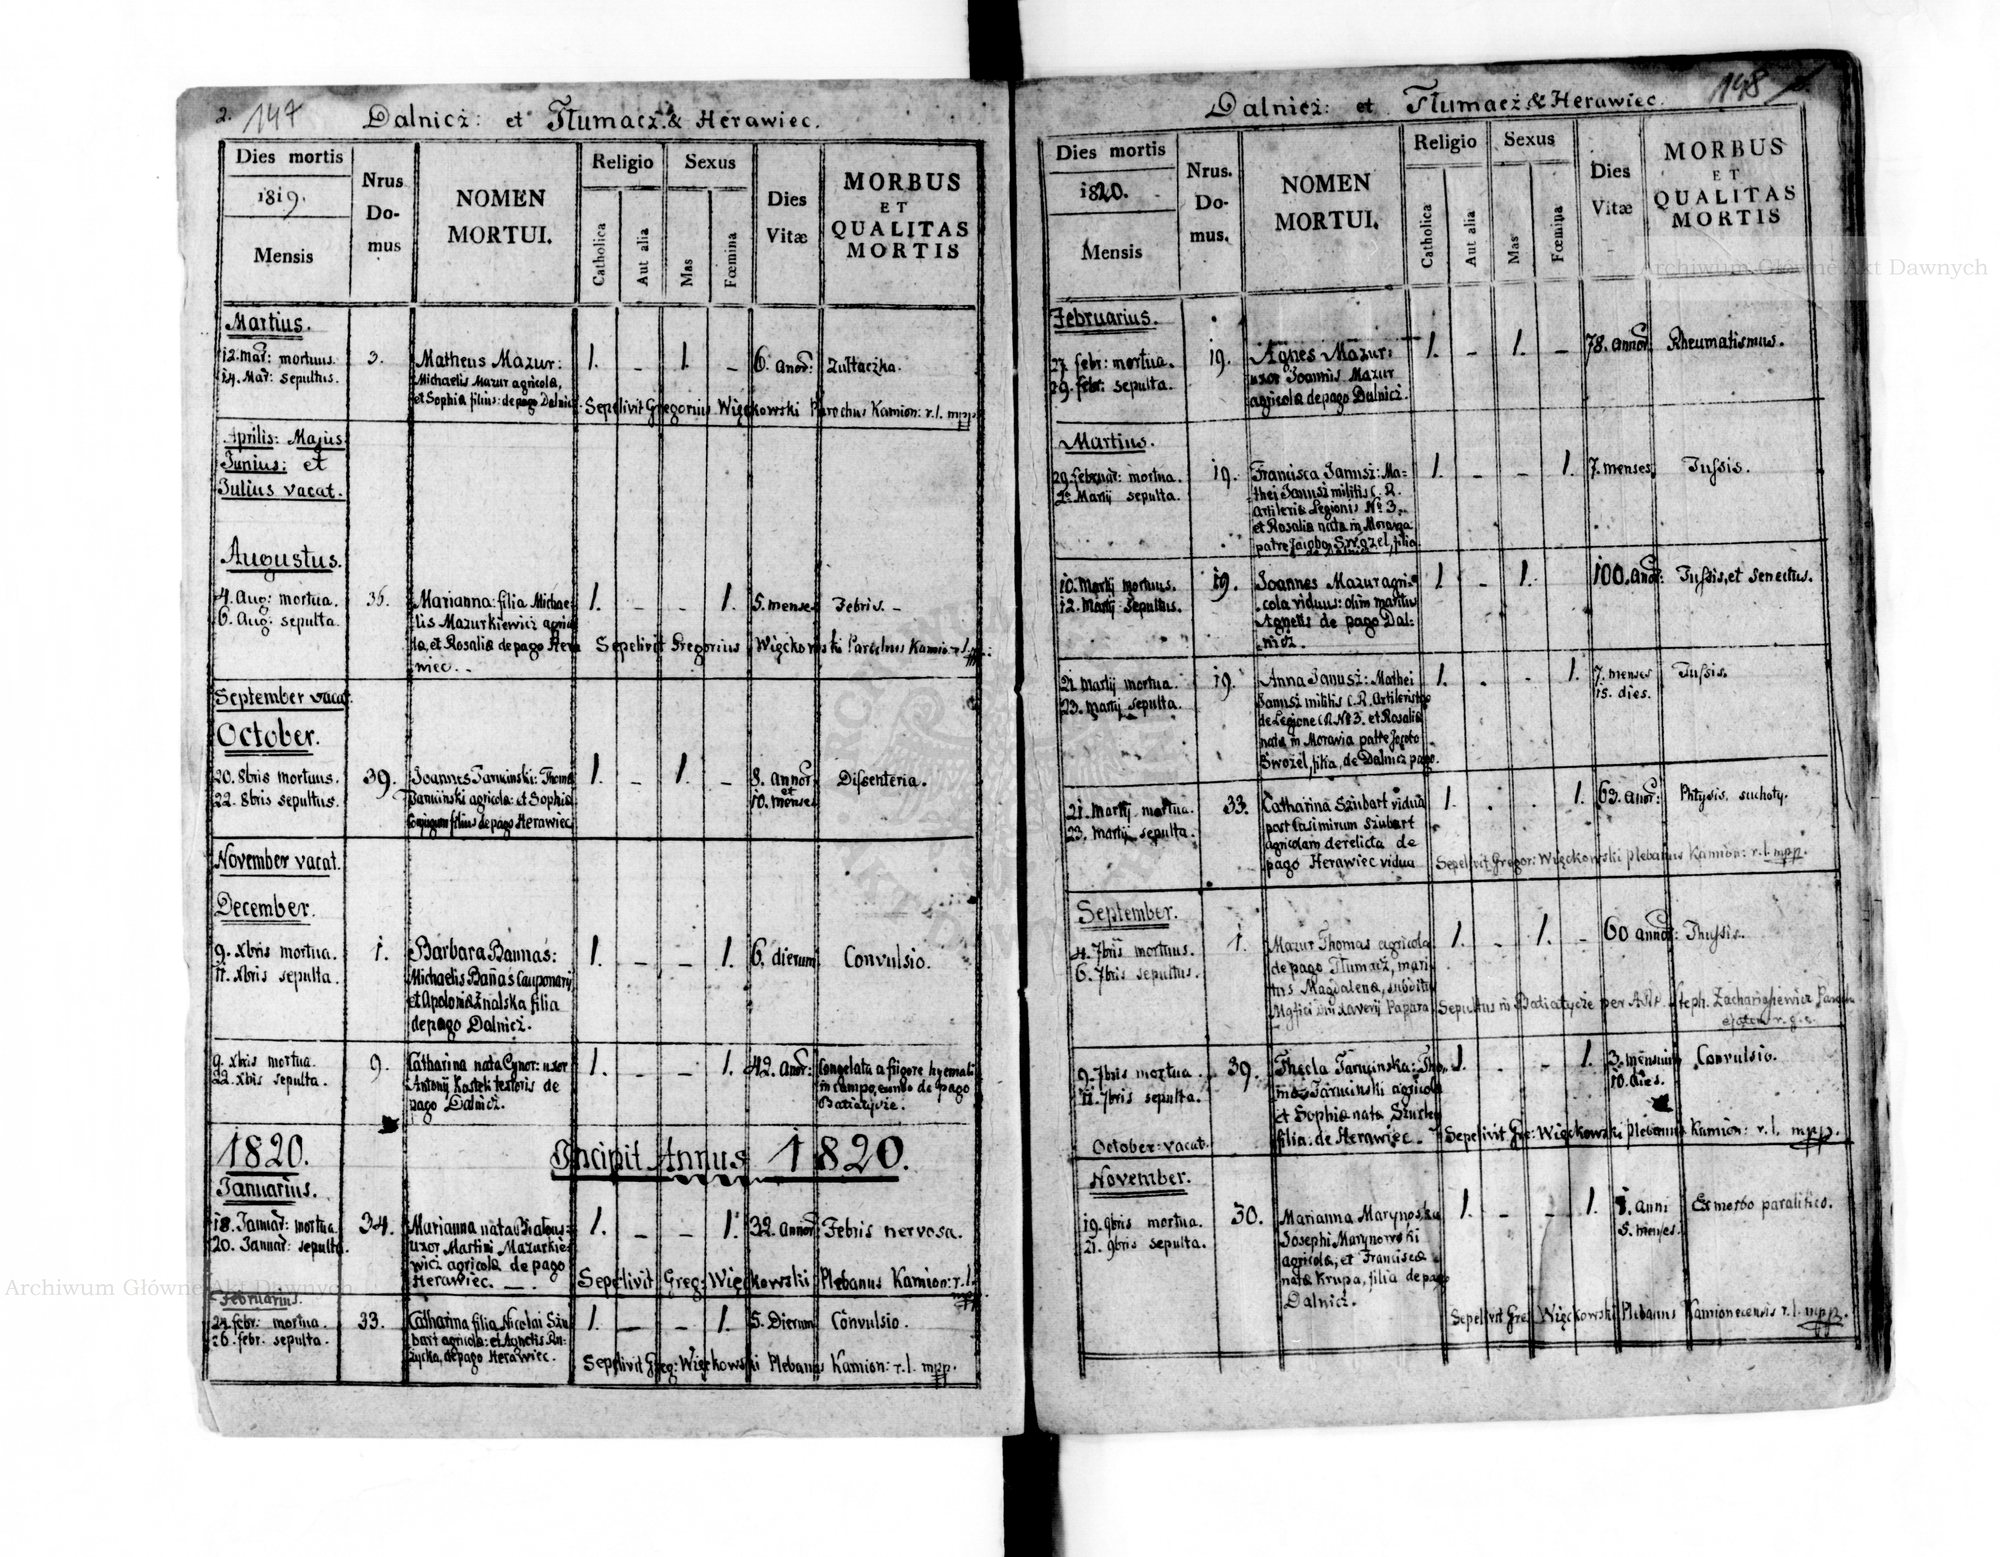 2. 147
Dalnicz: et Tłumacz: & Herawiec.
Dies mortis
1819.
Mensis
Nrus
Do-
mus
NOMEN
MORTUI.
Religio
Catholica
Aut alia
Sexus
Mas
Fœmina
Dies
Vitæ
MORBUS
ET
QUALITAS
MORTIS
Martius.
12. Mar: mortuus. 3. Matheus Mazur: 1. - 1. - 6. anor: Zułtaczka.
14. Mar: sepultus. Michaelis Mazur agricolæ,
et Sophiæ filius: de pago Dalnicz. Sepelivit Gregorius Więckowski Parochus Kamion: r. l. mpp
Aprilis: Majus
Junius: et
Julius vacat.
Augustus.
4. Aug: mortua. 36. Marianna: filia Michae- 1. - - 1. 5. menses Febris. -
6. Aug: sepulta. lis Mazurkiewicz agrico
læ, et Rosaliæ de pago Hera Sepelivit Gregorius Więckowski Parochus Kamion: r. l.
wiec. -
September vacat.
October.
20. 8bris mortuus. 39. Joannes Jarminski: Thomæ 1. - 1. - 8. annor Dissenteria.
22. 8bris sepultus. Jarminski agricolæ: et Sophiæ et 10. menses
conjugum filius de pago Herawiec
November vacat.
December.
9. Xbris mortua. 1. Barbara Bannas: 1. - - 1. 6. dierum Convulsio.
11. Xbris sepulta. Michaelis Bañas Cauponarij
et Apoloniæ Znalska filia
de pago Dalnicz.
9. Xbris mortua. 9. Catharina nata Cynor: uxor 1. - - 1. 42. Anor: Congelata a frigore hyemali
22. Xbris sepulta. Antonij Kostek textoris de in campo, eundo de pago
pago Dalnicz. Batiatycze.
1820. Incipit Annus 1820.
Januarius.
18. Januar: mortua 34. Marianna nata Białous: 1. - - 1. 32. annor Febris nervosa.
20. Januar: sepulta. uxor Martini Mazurkie-
wicz agricolæ de pago
Herawiec. - Sepelivit Greg: Więckowski Plebanus Kamion: r. l. mpp
Februarius.
24. febr: mortua. 33. Catharina filia Nicolai Szu 1. - - 1. 5. Dierum Convulsio.
26. febr. sepulta. bart agricolæ: et Agnetis
de pago Herawiec. Sepelivit Greg: Więckowski Plebanus Kamion: r. l. mpp.
148
Dalnicz: et Tłumacz: & Herawiec.
Dies mortis
1820.
Mensis
Nrus.
Do-
mus.
NOMEN
MORTUI.
Religio
Catholica
Aut alia
Sexus
Mas
Fœmina
Dies
Vitæ
MORBUS
ET
QUALITAS
MORTIS
Februarius.
27. febr: mortua. 19. Agnes Mazur: 1. - 1. - 78. annor Rheumatismus.
29. febr: sepulta. uxor Joannis Mazur
agricolæ de pago Dalnicz.
Martius.
29. februar: mortua. 19. Francisca Janusz: Ma- 1. - - 1. 7. menses Tussis.
2. Martij sepulta. thei Janusz militis C. R.
Artileriæ Legionis No 3.
et Rosaliæ nata in Moravia
patre Jacobo Swozel, filia
de Dalnicz
10. Martij mortuus. 19. Joannes Mazur agri- 1. - 1. 100. anor: Tussis, et senectus.
12. Martij sepultus. cola viduus: olim maritus
Agnetis de pago Dal-
nicz.
21 martij mortua. 19. Anna Janusz: Mathei 1. - - 1. 7. menses Tussis.
23. martij sepulta. Janusz militis C. R. Artileristæ 15. dies.
de Legione C. R. No 3. et Rosaliæ
nata in Moravia patre Jacobo
Swozel, filia, de Dalnicz pago.
21. Martij mortua. 33. Catharina Szubart vidua 1. - - 1. 63. anor: Phtysis, suchoty.
23. martij sepulta. post Casimirum Szubart
agricolam derelicta de
pago Herawiec vidua Sepelivit Gregor: Więckowski plebanus Kamion: r. l. mpp.
September.
4. 7bris mortuus. 1. Mazur Thomas agricola 1. - 1. - 60 annor: Thussis.
6. 7bris sepultus. de pago Tłumacz, mari
tus Magdalenæ, subditus
Mgfici Dni Xaverij Papara Sepultus in Batiatycze per A. R. Steph. Zacharyasiewicz
9. 7bris mortua. 39. Thecla Jarminska: Tho- 1. - - 1. 3. mensium Convulsio.
11. 7bris sepulta. mæ Jarminski agricolæ 10. dies.
et Sophiæ nata
October: vacat. filia: de Herawiec. - Sepelivit Gre: Więckowski Plebanus Kamion: r. l. mpp.
November.
19. 9bris mortua. 30. Marianna Marynowska 1. - - 1. 1. Anni Ex morbo paralitico.
21. 9bris sepulta. Josephi Marynowski 5. menses.
agricolæ; et Franciscæ
nata Krupa, filia de pago
Dalnicz.
Sepelivit Gre: Więckowski Plebanus Kamionecensis r. l. mpp.
Archiwum Główne Akt Dawnych
Archiwum Główne Akt Dawnych